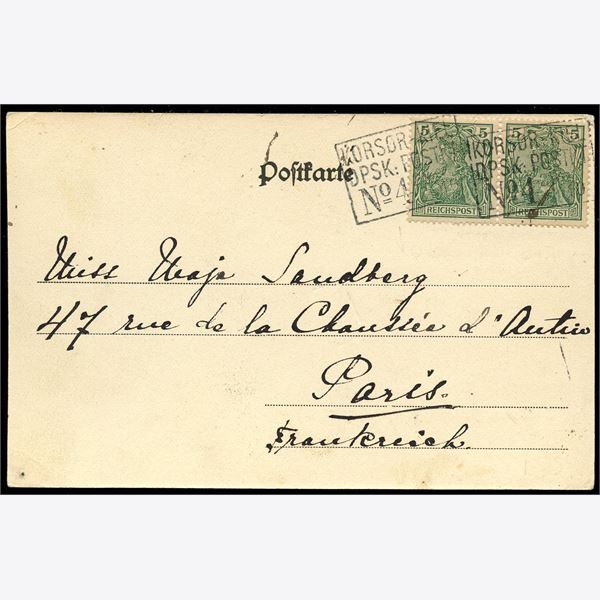 5 5 5 5
KORSØR-
DPSK. POST
No 4
KORSØR-
DPSK. POST
No 1
REICHSPOST REICHSPOST
Postkarte
Miss Maja Sandberg
47 rue de la Chaussée d'Antin
Paris.
Frankreich.